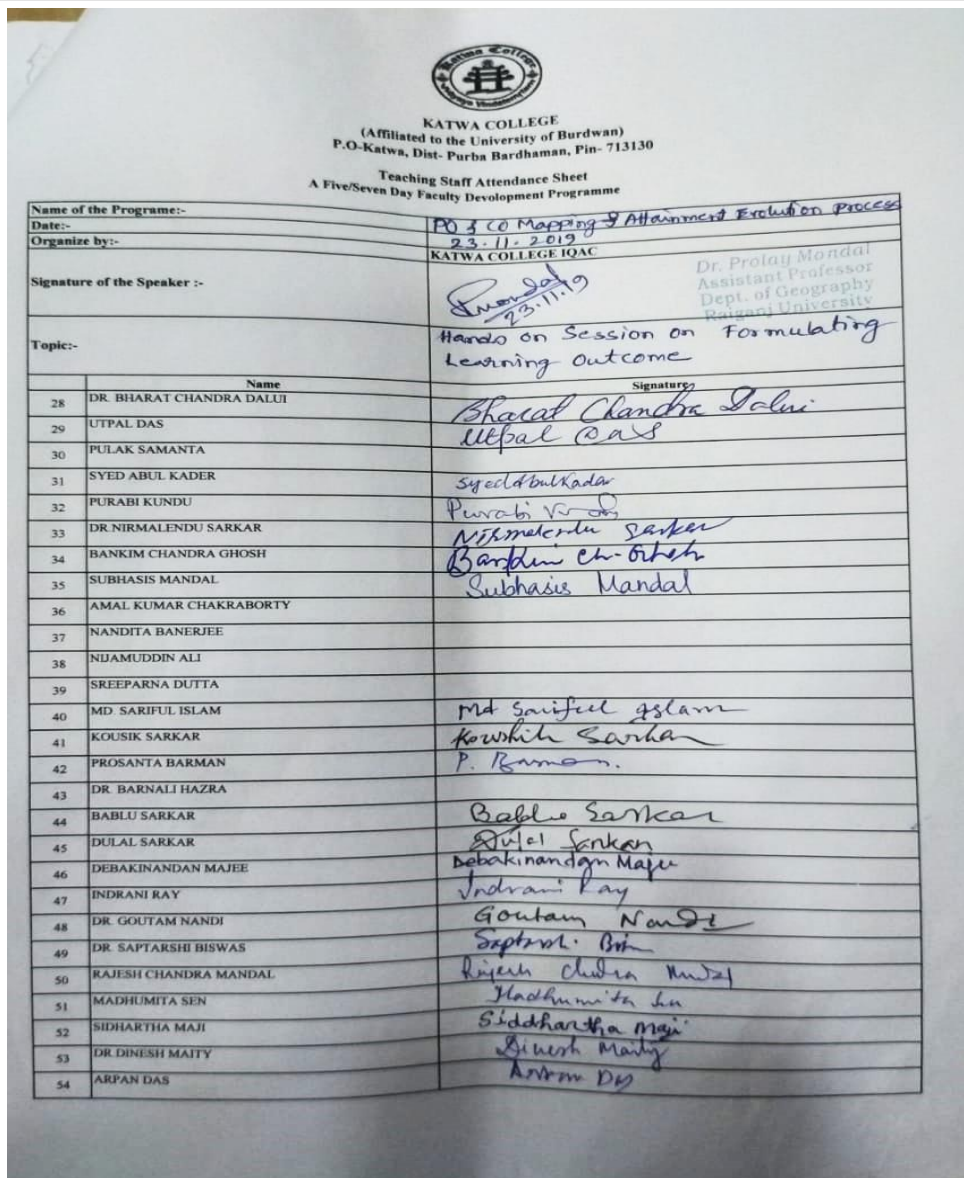 Katwa College
KATWA COLLEGE
(Affiliated to the University of Burdwan)
P.O-Katwa, Dist- Purba Bardhaman, Pin- 713130
Teaching Staff Attendance Sheet
A Five/Seven Day Faculty Devolopment Programme
Name of the Programe:- PO & CO Mapping & Attainment Evolution Process
Date:- 23.11.2019
Organize by:- KATWA COLLEGE IQAC
Signature of the Speaker :- Pmondal
23.11.19
Dr. Prolay Mondal
Assistant Professor
Dept. of Geography
Raiganj University
Topic:- Hands on Session on Formulating
Learning Outcome
Name Signature
28 DR. BHARAT CHANDRA DALUI Bharat Chandra Dalui
29 UTPAL DAS Utpal Das
30 PULAK SAMANTA
31 SYED ABUL KADER Syed Abul Kadar
32 PURABI KUNDU Purabi
33 DR.NIRMALENDU SARKAR Nirmalendu Sarkar
34 BANKIM CHANDRA GHOSH Bankim Ch. Ghosh
35 SUBHASIS MANDAL Subhasis Mandal
36 AMAL KUMAR CHAKRABORTY
37 NANDITA BANERJEE
38 NIJAMUDDIN ALI
39 SREEPARNA DUTTA
40 MD. SARIFUL ISLAM Md Sariful Islam
41 KOUSIK SARKAR Kowshik Sarkar
42 PROSANTA BARMAN P. Barman.
43 DR. BARNALI HAZRA
44 BABLU SARKAR Bablu Sarkar
45 DULAL SARKAR Dulal Sarkar
46 DEBAKINANDAN MAJEE Debakinandan Majee
47 INDRANI RAY Indrani Ray
48 DR. GOUTAM NANDI Goutam Nandi
49 DR. SAPTARSHI BISWAS
50 RAJESH CHANDRA MANDAL Rajesh Chandra Mandal
51 MADHUMITA SEN Madhumita Sen
52 SIDHARTHA MAJI Siddhartha Maji
53 DR.DINESH MAITY Dinesh Maity
54 ARPAN DAS Arpan Das